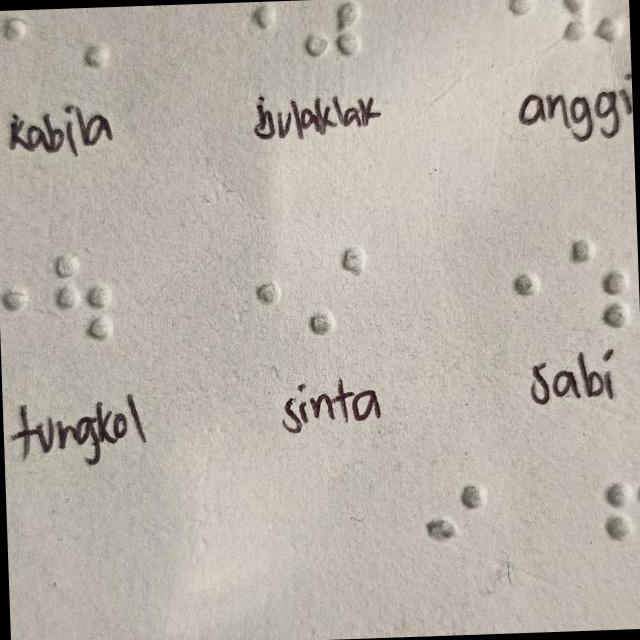 kabila bulaklak anggi
tungkol sinta sabi